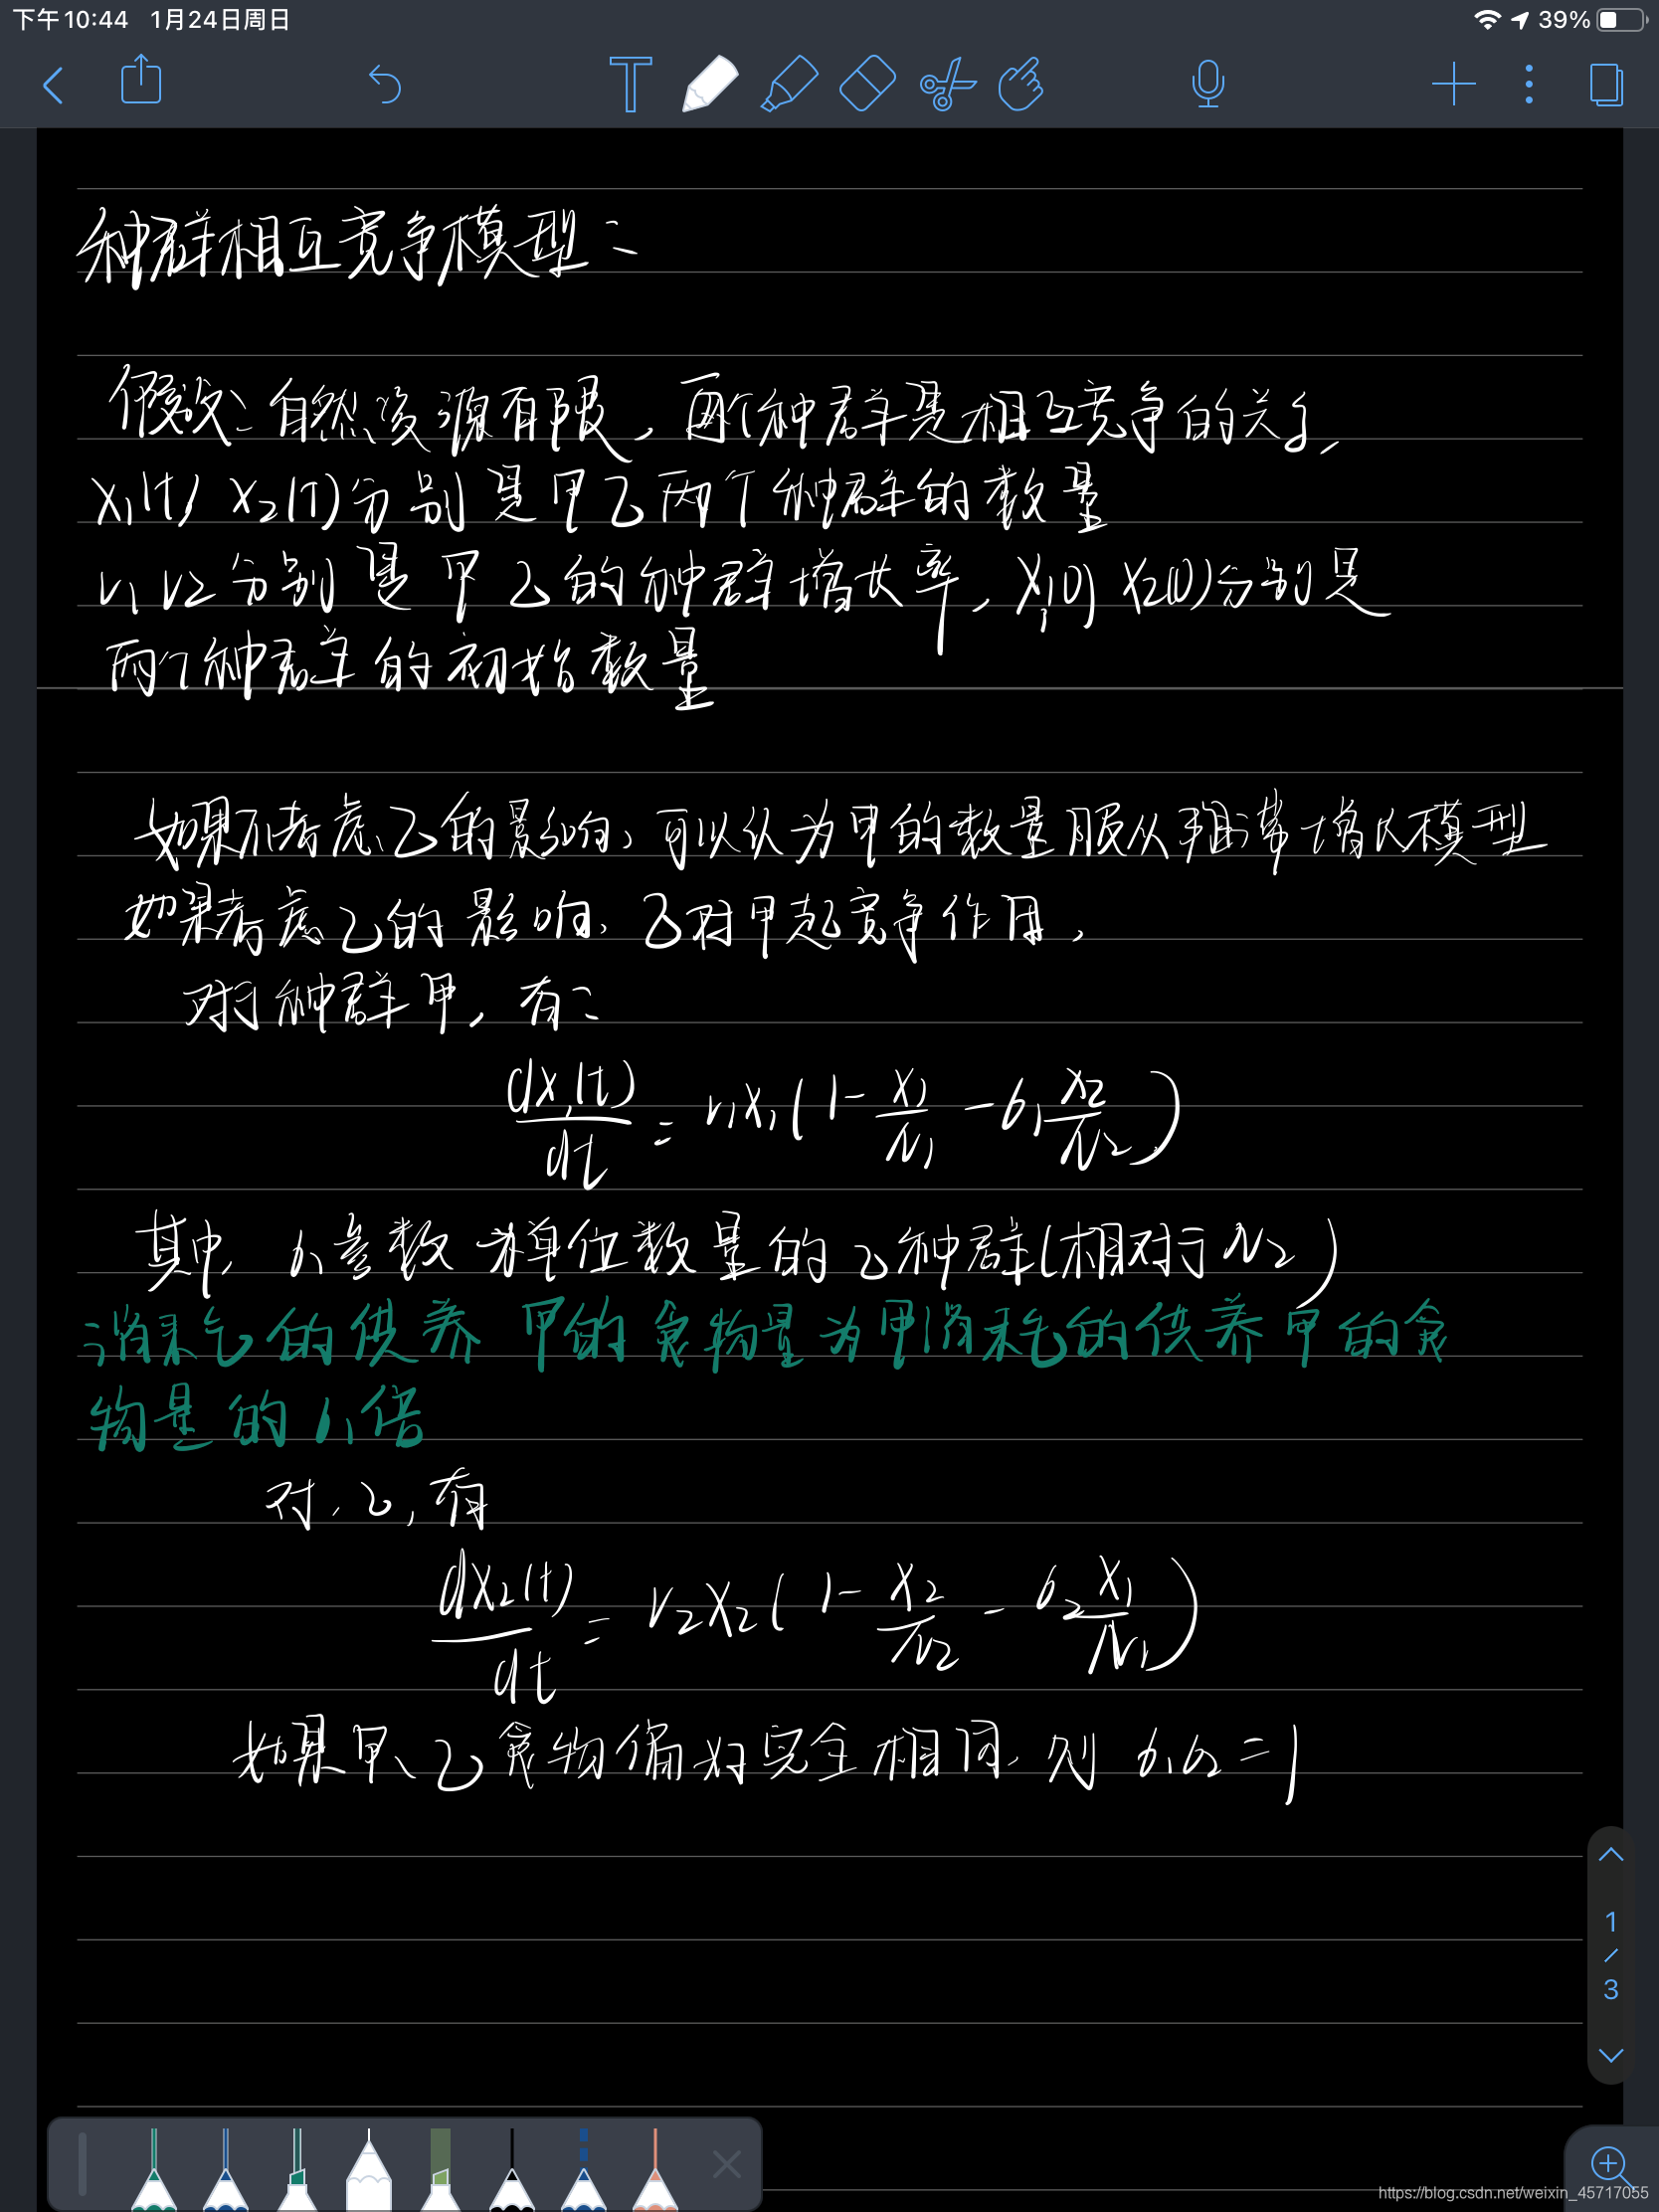 下午10:44 1月24日周日
39%
种群相互竞争模型:
假设:自然资源有限,两个种群是相互竞争的关系,
x₁(t) x₂(t)分别是甲乙两个种群的数量
r₁ r₂分别是甲乙的种群增长率,x₁(0) x₂(0)分别是
两个种群的初始数量
如果不考虑乙的影响,可以认为甲的数量服从阻滞增长模型
如果考虑乙的影响,乙对甲起竞争作用,
对于种群甲,有:
dx₁(t)/dt = r₁x₁(1 - x₁/N₁ - σ₁ x₂/N₂)
其中,σ₁参数为单位数量的乙种群(相对于N₂)
消耗的供养甲的食物量为甲消耗的供养甲的食
物量的σ₁倍
对,乙,有
dx₂(t)/dt = r₂x₂(1 - x₂/N₂ - σ₂ x₁/N₁)
如果甲、乙食物偏好完全相同,则σ₁σ₂=1
1
/
3
https://blog.csdn.net/weixin_45717055